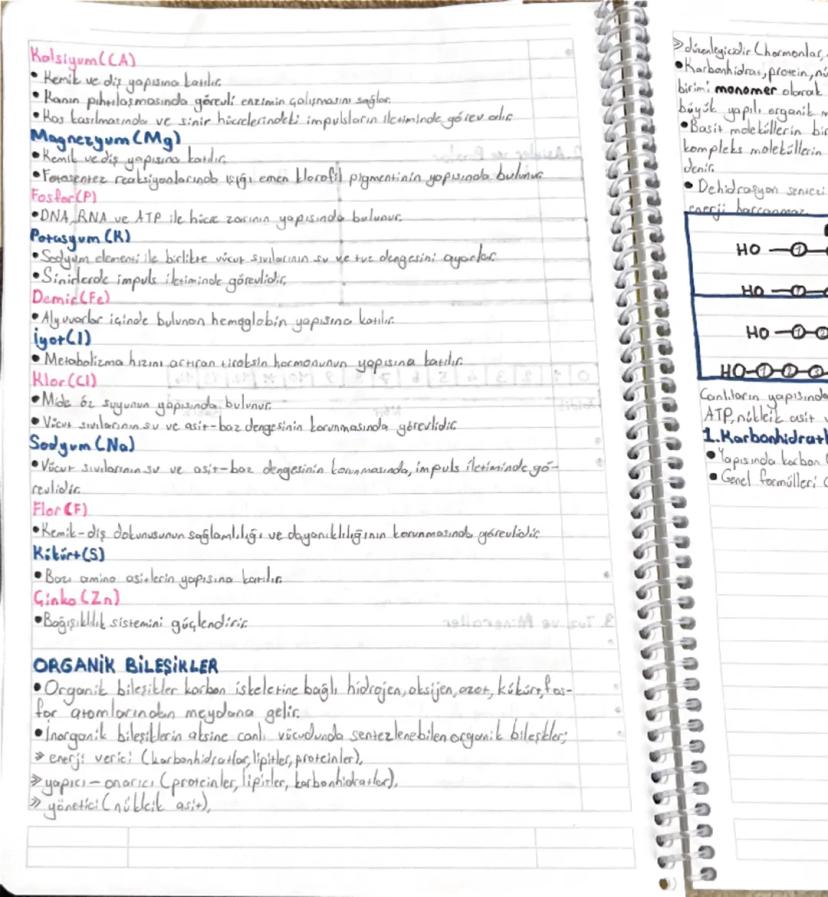 Kalsiyum(CA)
• Kemik ve diş yapısına katılır.
• Kanın pıhtılaşmasında görevli enzimin çalışmasını sağlar.
• Kas kasılmasında ve sinir hücrelerindeki impulsların iletiminde görev alır.
Magnezyum(Mg)
• Kemik ve diş yapısına katılır.
• Fotosentez reaksiyonlarında ışığı emen klorofil pigmentinin yapısında bulunur.
Fosfor(P)
• DNA, RNA ve ATP ile hücre zarının yapısında bulunur.
Potasyum(K)
• Sodyum elementi ile birlikte vücut sıvılarının su ve tuz dengesini ayarlar.
• Sinirlerde impuls iletiminde görevlidir.
Demir(Fe)
• Alyuvarlar içinde bulunan hemoglobin yapısına katılır.
İyot(I)
• Metabolizma hızını artıran tiroksin hormonunun yapısına katılır.
Klor(Cl)
• Mide öz suyunun yapısında bulunur.
• Vücut sıvılarının su ve asit-baz dengesinin korunmasında görevlidir.
Sodyum(Na)
• Vücut sıvılarının su ve asit-baz dengesinin korunmasında, impuls iletiminde gö-
revlidir.
Flor(F)
• Kemik-diş dokunusunun sağlamlılığı ve dayanıklılığının korunmasında görevlidir.
Kükürt(S)
• Bazı amino asitlerin yapısına katılır.
Çinko(Zn)
• Bağışıklılık sistemini güçlendirir.
ORGANİK BİLEŞİKLER
• Organik bileşikler karbon iskeletine bağlı hidrojen, oksijen, azot, kükürt, fos-
for atomlarından meydana gelir.
• İnorganik bileşiklerin aksine canlı vücudunda sentezlenebilen organik bileşikler;
» enerji verici (karbonhidratlar, lipitler, proteinler),
» yapıcı-onarıcı (proteinler, lipitler, karbonhidratlar),
» yönetici (nükleik asit),
» düzenleyicidir (hormonlar,
• Karbonhidrat, protein, nü
birimi monomer olarak
büyük yapılı organik m
• Basit moleküllerin bir
kompleks moleküllerin
denir.
• Dehidrasyon sentezi
enerji harcanmaz.
HO
HO
HO
HO
Canlıların yapısında
ATP, nükleik asit v
1.Karbonhidratl
• Yapısında karbon (
• Genel formülleri (